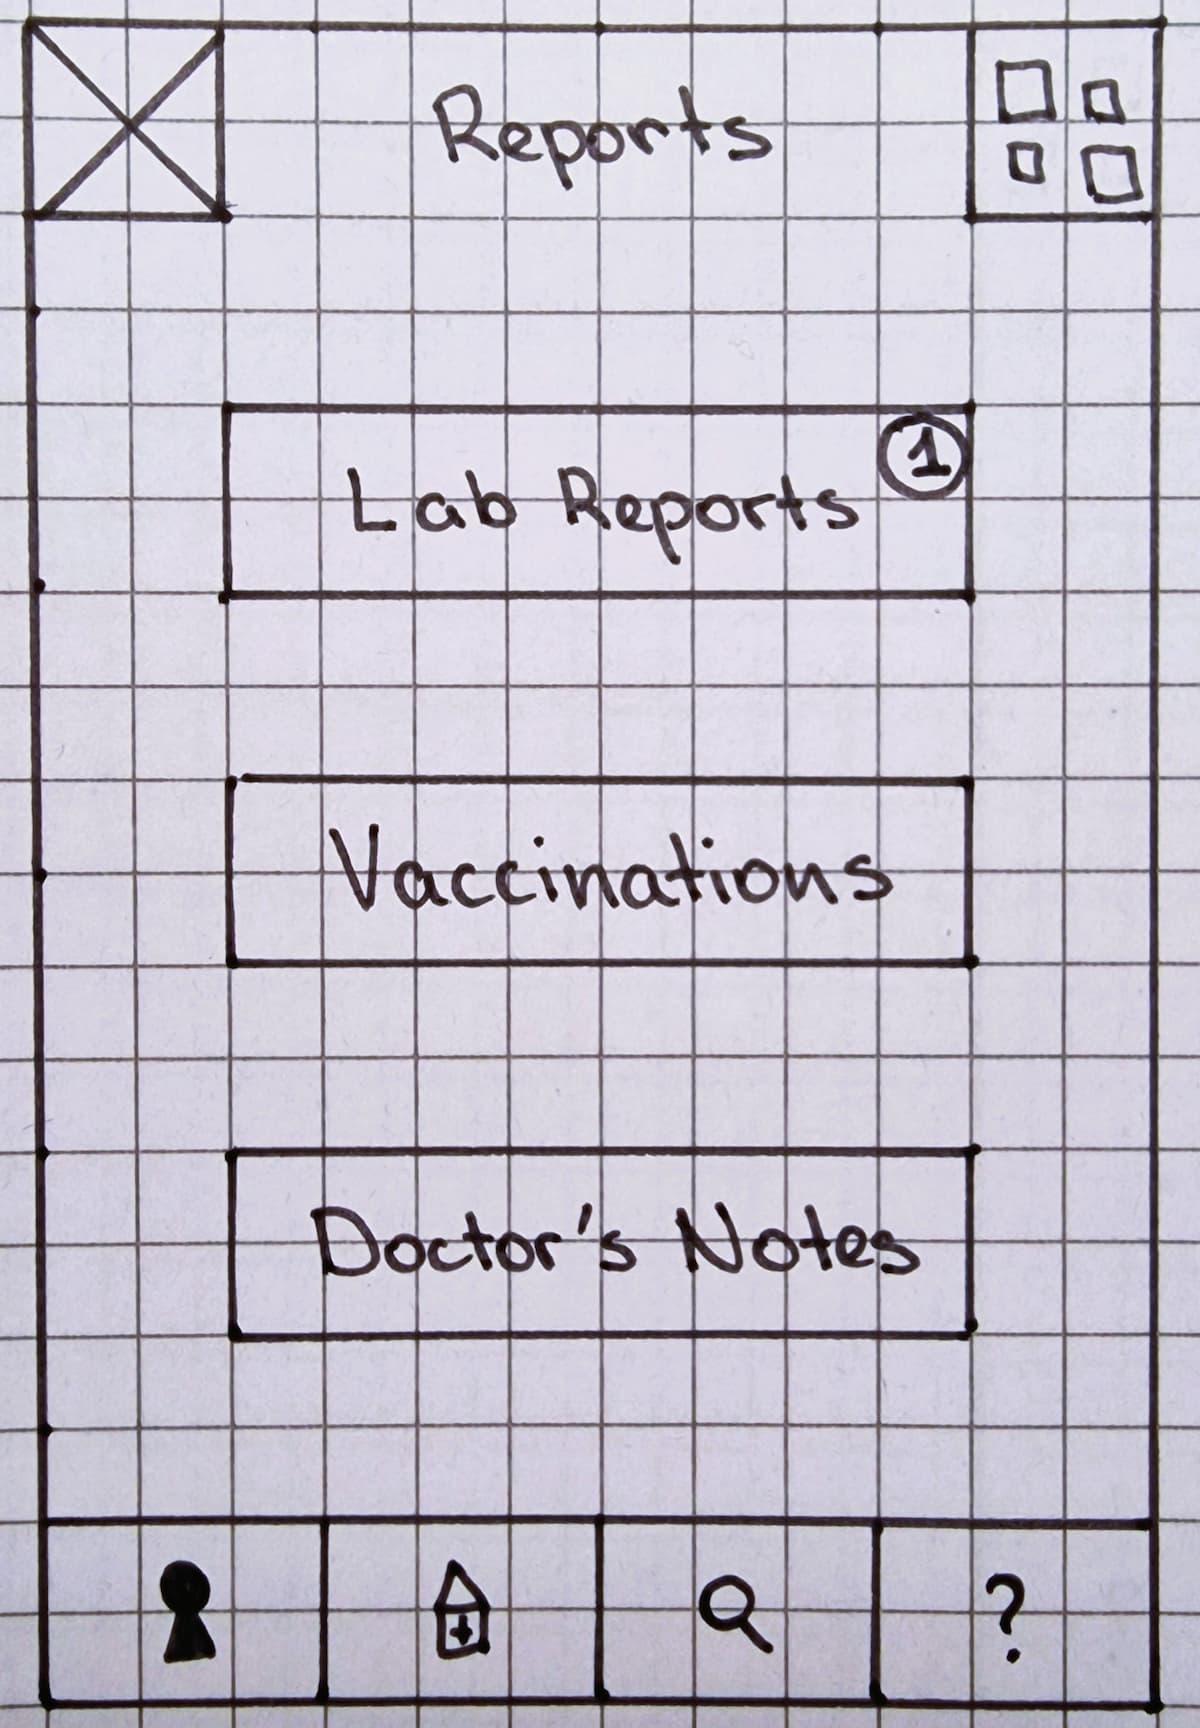 Reports
1
Lab Reports
Vaccinations
Doctor's Notes
?